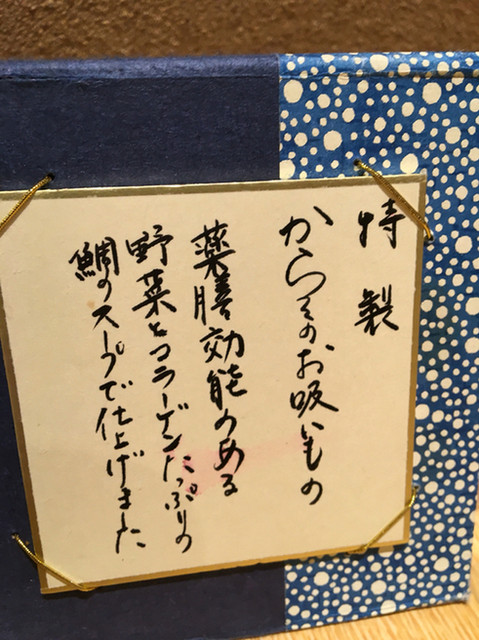 特製
からみのお吸いもの
薬膳効能のある
野菜とコラーゲンたっぷりの
鯛のスープで仕上げました